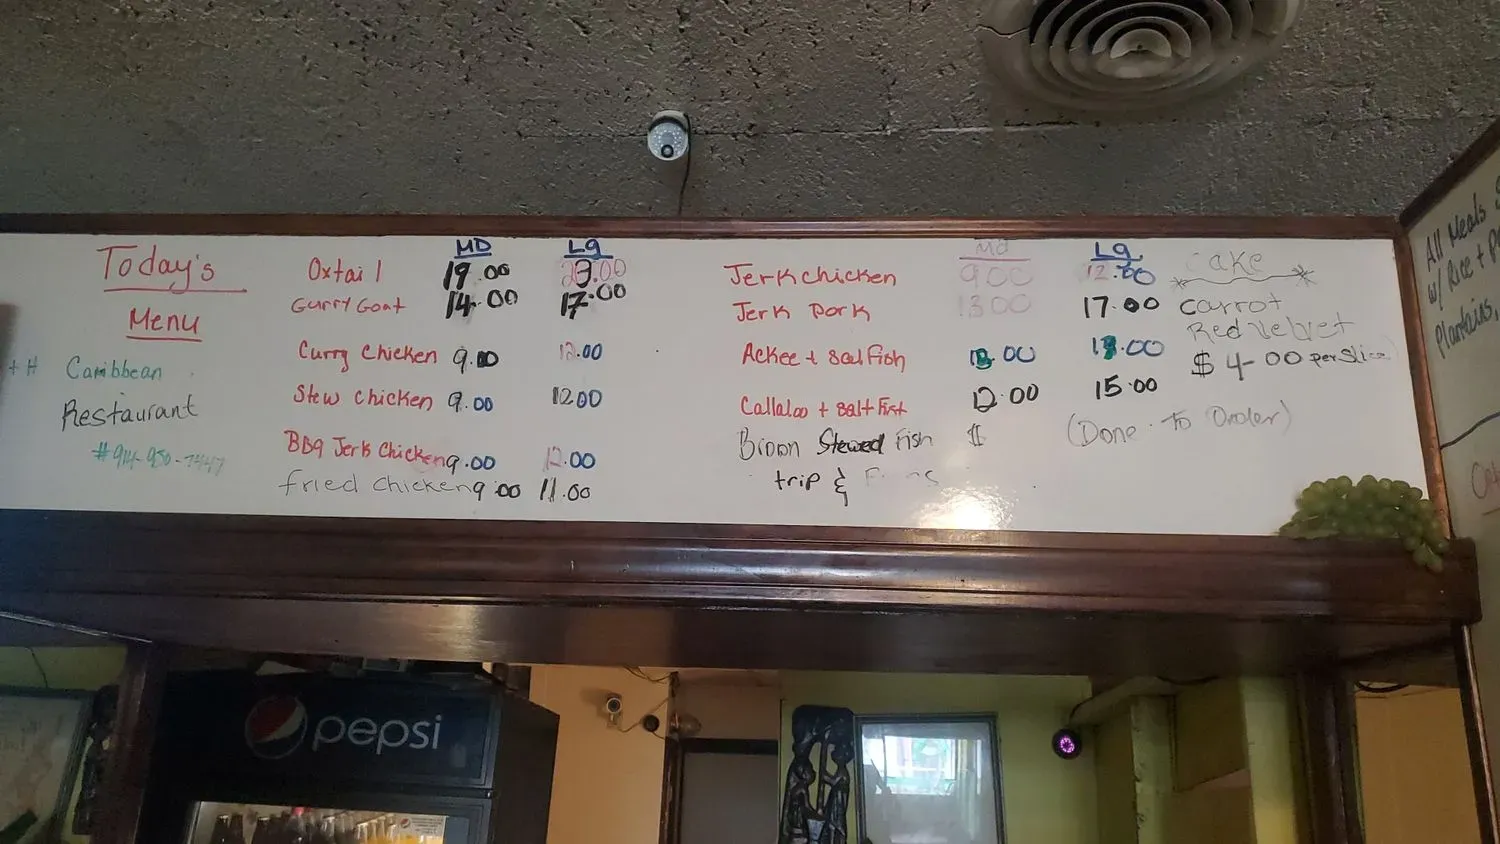 Today's
Menu
+ H Caribbean
Restaurant
MD Lg
Oxtail 19.00
Curry Goat 14.00 17.00
Curry Chicken 9.00 12.00
Stew Chicken 9.00 12.00
BBq Jerk Chicken 9.00 12.00
fried chicken 9.00 11.00
Md Lg
Jerk chicken 9.00 12.00
Jerk Pork 13.00 17.00
Ackee + Saltfish
Callaloo + Saltfish 12.00 15.00
Brown Stewed Fish $ (Done To Order)
trip &
Cake
Carrot
Red Velvet
$ 4-00 per Slice
All Meals
w/ Rice +
Plantains,
pepsi